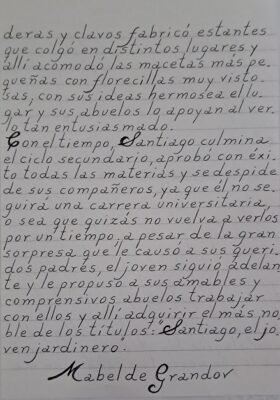 deras y clavos fabricó estantes
que colgó en distintos lugares y
allí acomodó las macetas más pe-
queñas con florecillas muy visto-
sas, con sus ideas hermosea el lu-
gar y sus abuelos lo apoyan al ver-
lo tan entusiasmado.
Con el tiempo, Santiago culmina
el ciclo secundario, aprobó con éxi-
to todas las materias y se despide
de sus compañeros, ya que él no se-
guirá una carrera universitaria,
o sea que quizás no vuelva a verlos
por un tiempo, a pesar de la gran
sorpresa que le causó a sus queri-
dos padres, el joven siguió adelan-
te y le propuso a sus amables y
comprensivos abuelos trabajar
con ellos y allí adquirir el más no-
ble de los títulos: Santiago, el jo-
ven jardinero.
Mabel de Grandov